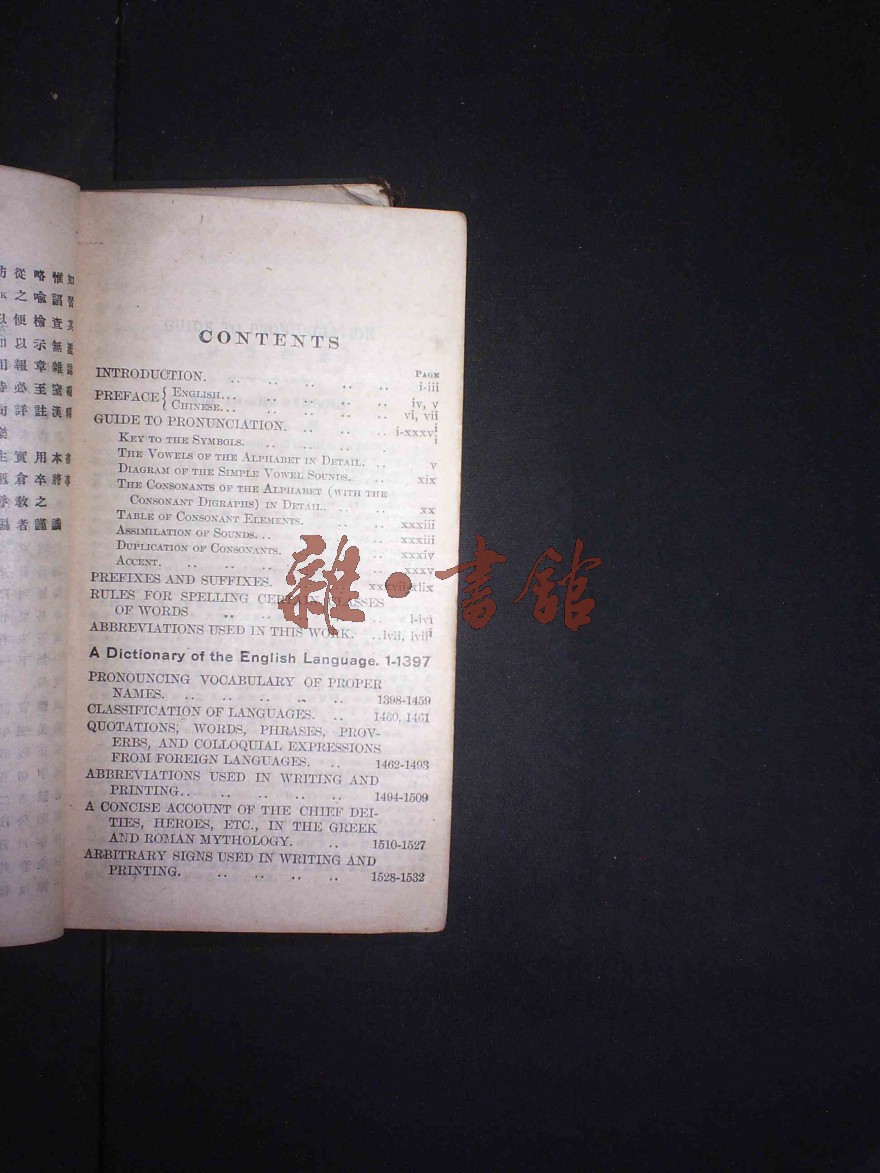 CONTENTS
PAGE
INTRODUCTION. .. .. .. .. .. i-iii
PREFACE { ENGLISH... .. .. .. .. iv, v
{ CHINESE... .. .. .. .. vi, vii
GUIDE TO PRONUNCIATION. .. .. .. i-xxxvi
KEY TO THE SYMBOLS. .. .. .. .. i
THE VOWELS OF THE ALPHABET IN DETAIL. .. v
DIAGRAM OF THE SIMPLE VOWEL SOUNDS. .. xix
THE CONSONANTS OF THE ALPHABET (WITH THE
CONSONANT DIGRAPHS) IN DETAIL. .. .. xx
TABLE OF CONSONANT ELEMENTS. .. .. xxxiii
ASSIMILATION OF SOUNDS. .. .. .. xxxiii
DUPLICATION OF CONSONANTS. .. .. xxxiv
ACCENT. .. .. .. .. .. xxxv
PREFIXES AND SUFFIXES. .. xxxvii-xlix
RULES FOR SPELLING CERTAIN CLASSES
OF WORDS .. .. .. .. .. l-lvi
ABBREVIATIONS USED IN THIS WORK. .. lvii, lviii
A Dictionary of the English Language. 1-1397
PRONOUNCING VOCABULARY OF PROPER
NAMES. .. .. .. .. .. 1398-1459
CLASSIFICATION OF LANGUAGES. .. 1460, 1461
QUOTATIONS, WORDS, PHRASES, PROV-
ERBS, AND COLLOQUIAL EXPRESSIONS
FROM FOREIGN LANGUAGES. .. 1462-1493
ABBREVIATIONS USED IN WRITING AND
PRINTING.. .. .. .. .. 1494-1509
A CONCISE ACCOUNT OF THE CHIEF DEI-
TIES, HEROES, ETC., IN THE GREEK
AND ROMAN MYTHOLOGY. .. 1510-1527
ARBITRARY SIGNS USED IN WRITING AND
PRINTING. .. .. .. .. 1528-1532
雜·書館